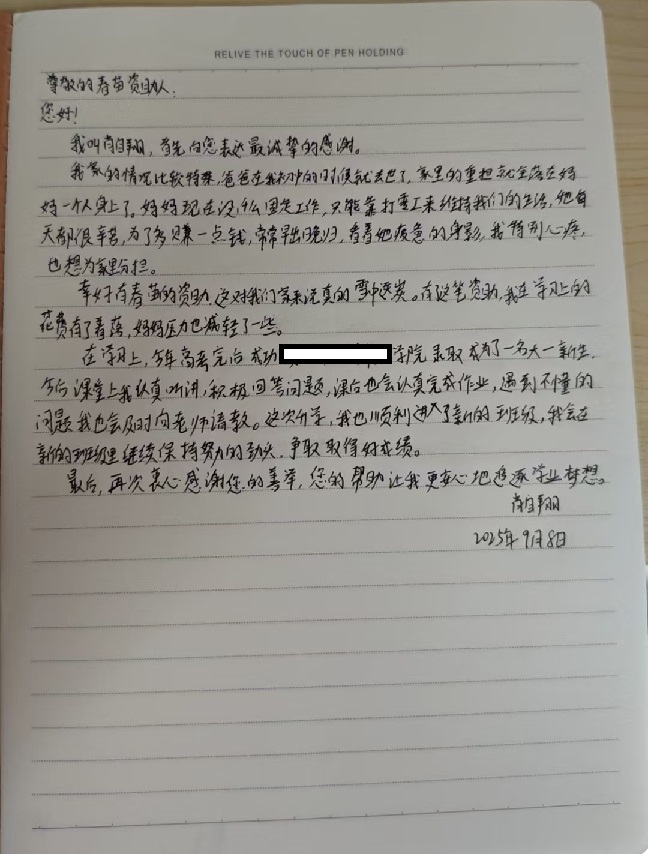 RELIVE THE TOUCH OF PEN HOLDING
尊敬的春苗资助人:
您好!
我叫肖自翔,首先向您表达最诚挚的感谢。
我家的情况比较特殊,爸爸在我初中的时候就去世了,家里的重担就全落在妈
妈一个人身上了。妈妈现在没什么固定工作,只能靠打零工来维持我们的生活,她每
天都很辛苦,为了多赚一点钱,常常早出晚归,看着她疲惫的身影,我特别心疼,
也想为家里分担。
幸好有春苗的资助,这对我们家来说真的雪中送炭。有这笔资助,我在学习上的
花费有了着落,妈妈压力也减轻了一些。
在学习上,今年高考完后成功 学院录取成为了一名大一新生.
今后课堂上我认真听讲,积极回答问题,课后也会认真完成作业,遇到不懂的
问题我也会及时向老师请教。这次升学,我也顺利进入了新的班级,我会在
新的班级里继续保持努力的劲头,争取取得好成绩。
最后,再次衷心感谢您的善举,您的帮助让我更安心地追逐学业梦想。
肖自翔
2025年9月8日